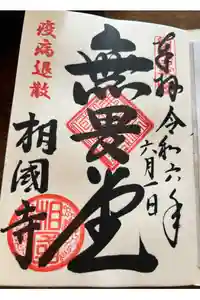 奉拝
令和六年
六月一日
無畏堂
疫病退散
相國寺